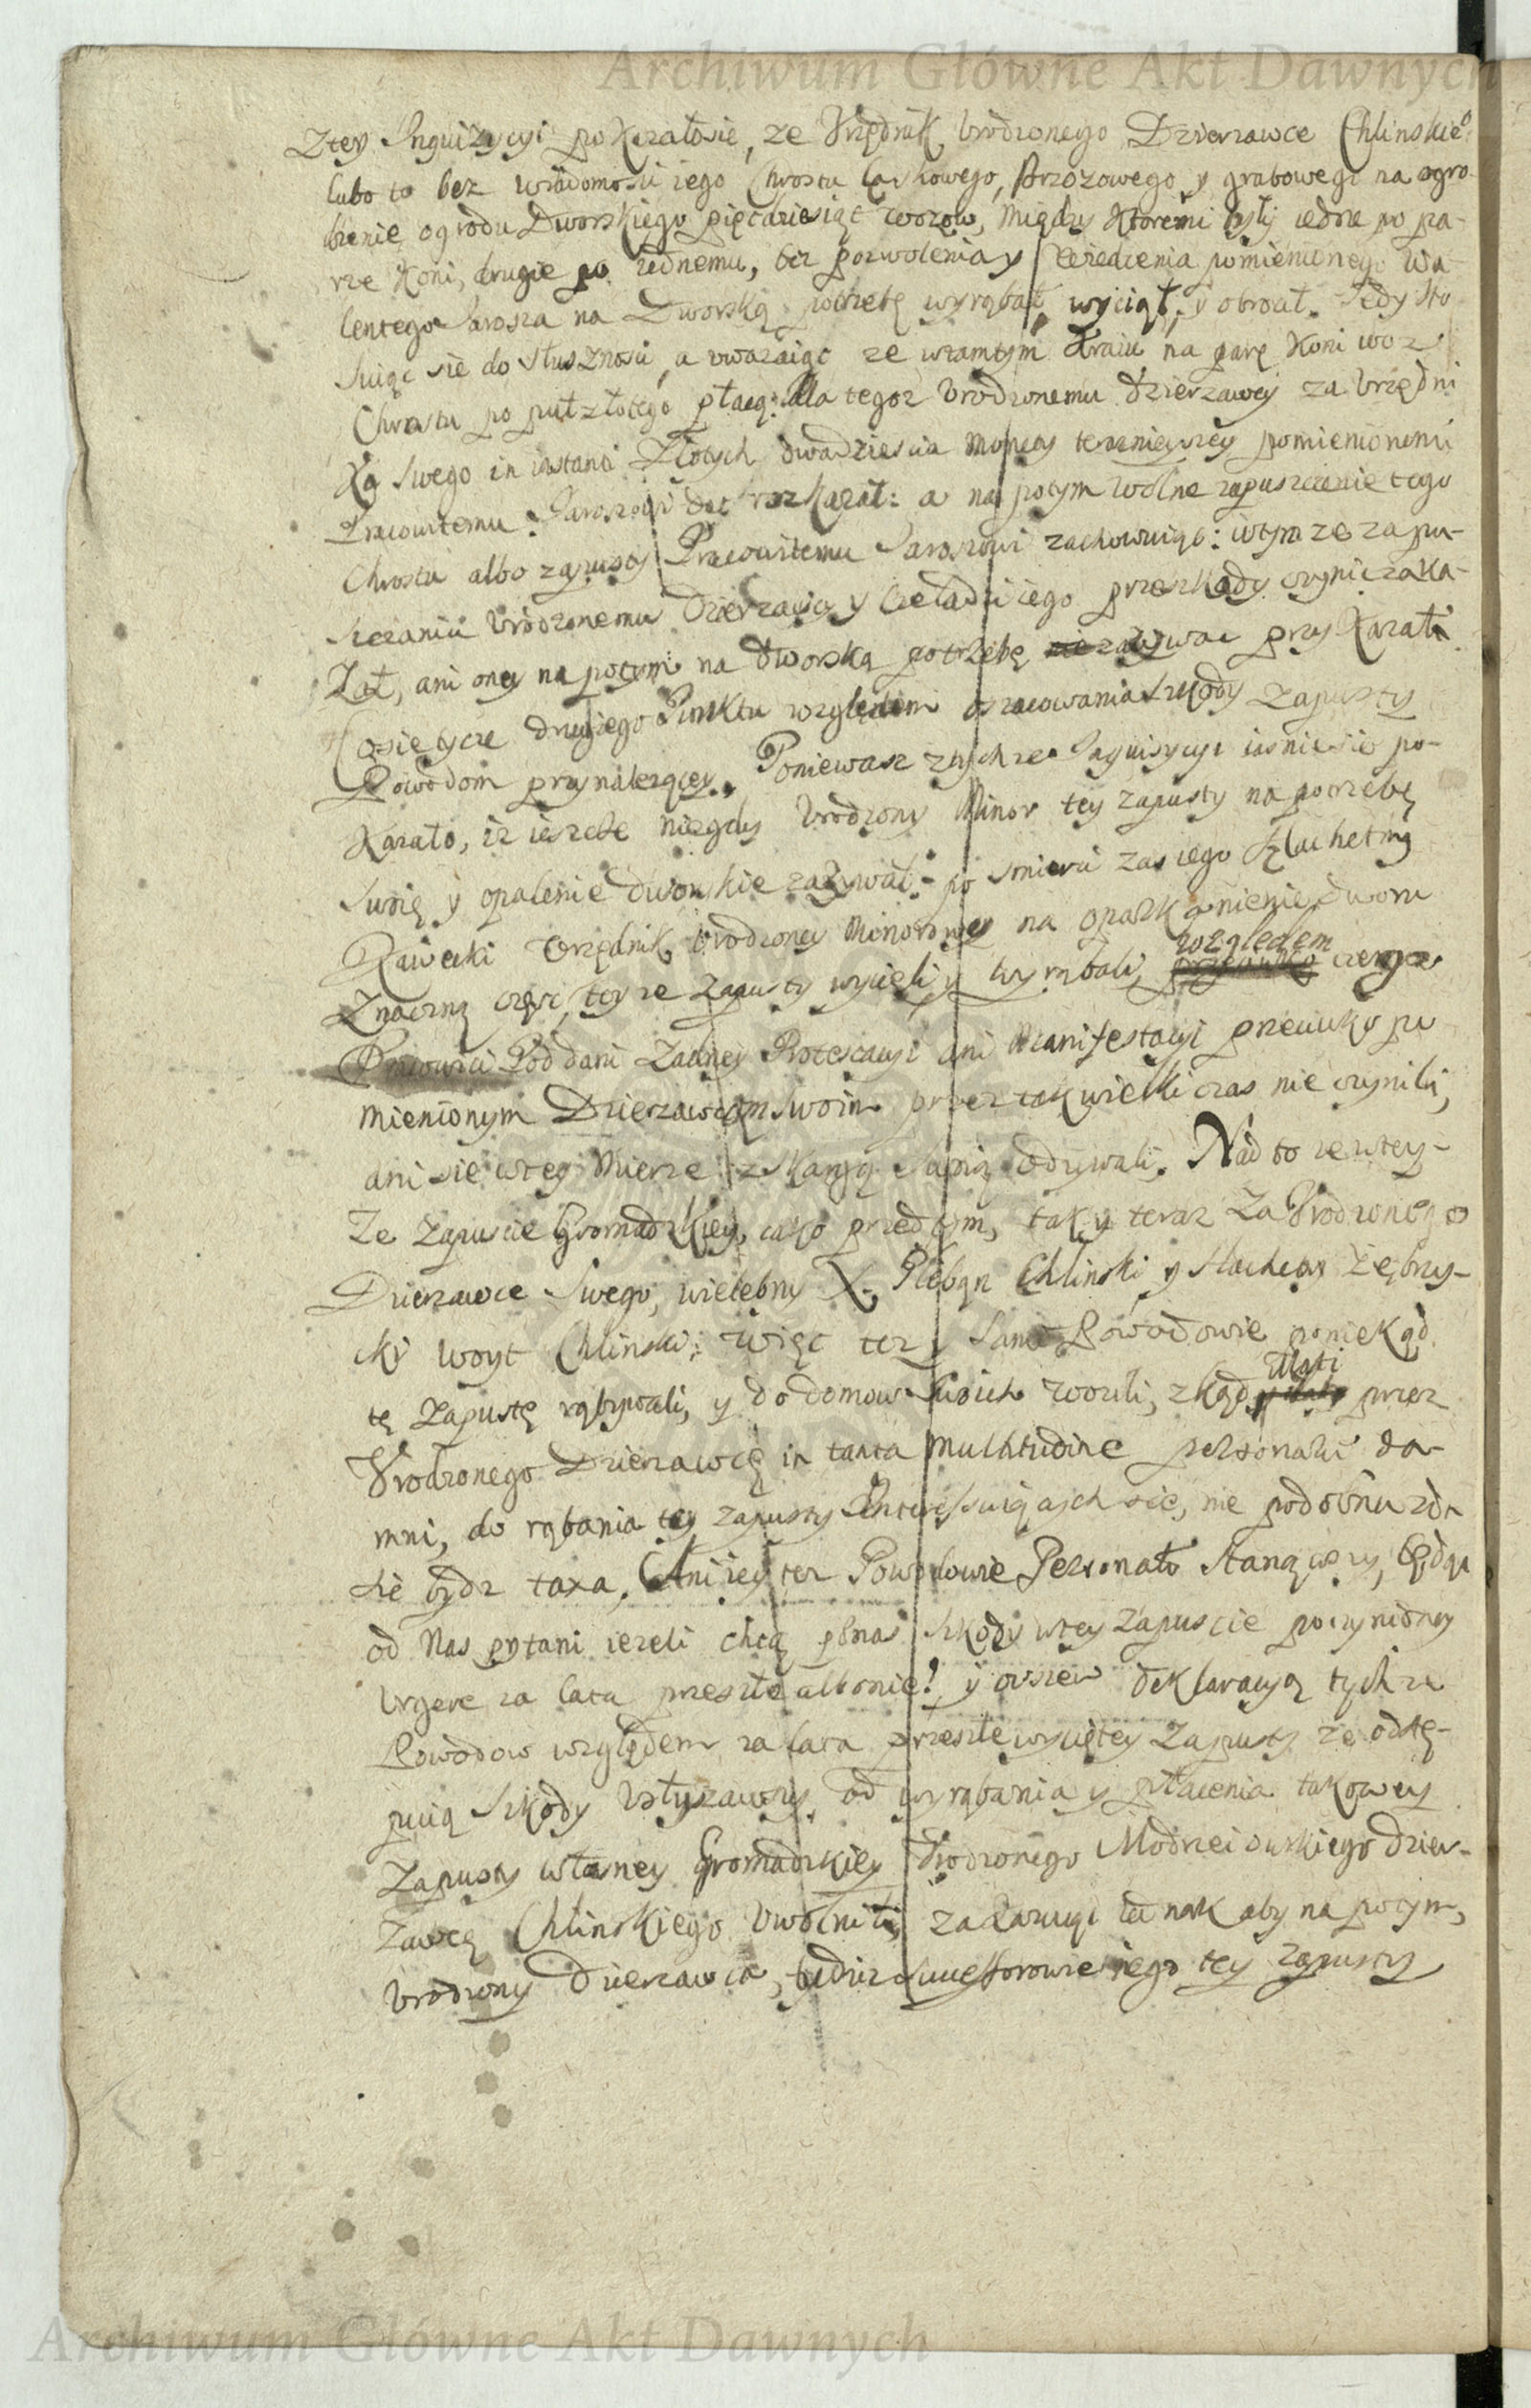 Archiwum Główne Akt Dawnych
Z tey Inquizycyi pokazałosie, ze Vrzędnik Vrodzonego Dzierzawce Chlinskieo
lubo to bez wiadomosci iego Chrostu Laskowego, Brzozowego y grabowego na ogro-
dzenie ogrodu Dworskiego pięcdziesiąt wozow, między ktoremi były iedne po pa-
rze Koni, drugie po iednemu, bez pozwolenia y wiedzenia pomienionego Wa-
lentego Jarosza na Dworską potrzebę wyrąbał, wyciął, y obrocił. Tedy sto
suiąc sie do słusznosci, a vwazaiąc ze wtamtym Kraiu na parę Koni woz
Chrostu po puł złotego płacą: Dla tegoz Vrodzonemu dzierzawcy za Vrzędni
ka swego in instanti Złotych dwadziescia Monety teraznieyszey pomienionemu
Pracowitemu Jaroszowi dac rozkazał: a na potym wolne zapuszczenie tego
Chrostu albo zapusty Pracowitemu Jaroszowi zachowuiąc: wtym ze zapu-
szczaniu Vrodzonemu Dzierzawcy y Czeladzi iego przeszkody czynic zaka-
zał, ani oney na potym na dworską potrzebę zazywac przykazał.
Cosie tycze drugiego Punktu względem oszacowania szkody Zapusty
Powodom przynalezącey, Poniewasz z tychze Inquisycyi iasnie sie po-
kazało, iz ieszcze niegdy Vrodzony Minor tey zapusty na potrzebę
swoię y opalenie dworskie zazywał: po smierci zas iego Szlachetny
Rawecki Vrzędnik Vrodzoney Minorowey na oparkanienie dworu
Znaczną częsc teyze zapusty wycieli y wyrąbali, względem czego
Pracowici Poddani Zadney Protestacyi ani Manifestacyi przeciwko po
mienionym Dzierzawcom swoim przez tak wielki czas nie czynili,
ani sie wtey Mierze z skargą swoią odzywali. Nad to ze wtey-
ze Zapuscie Gromadzkiey, iako przedtym, tak y teraz za Vrodzonego
Dzierzawce swego, wielebny X. Pleban Chlinski y Slachetny Zębrzy-
cki woyt Chlinski; więc tez y sami Powodowie poniekąd
tę Zapustę rąbywali, y do domow swoich wozili, zkąd illati przez
Vrodzonego Dzierzawcę in tanta multitudine personarum da-
mni, do rąbania tey zapusty Interessuiących sie, nie podobna zda
sie bydz taxa, Aniiey tez Powodowie Personalr Stanąwszy, będąc
od Nas pytani iezeli chcą po nas szkody wtey Zapuscie poczynioney
Vrgere za lata przeszłe albo nie! y owszem deklaracyą tychze
Powodow względem za lata przeszłe wyciętey Zapusty ze odstę-
puią szkody Vsłyszawszy, od wyrąbania y płacenia takowey
Zapusty własney Gromadzkiey Vrodzonego Modrzeiowskiego dzier-
zawcę Chlinskiego Vwolnił, zakazuiąc iednak aby na potym,
Vrodzony Dzierzawca, tudziez Successorowie iego tey zapusty
Archiwum Główne Akt Dawnych